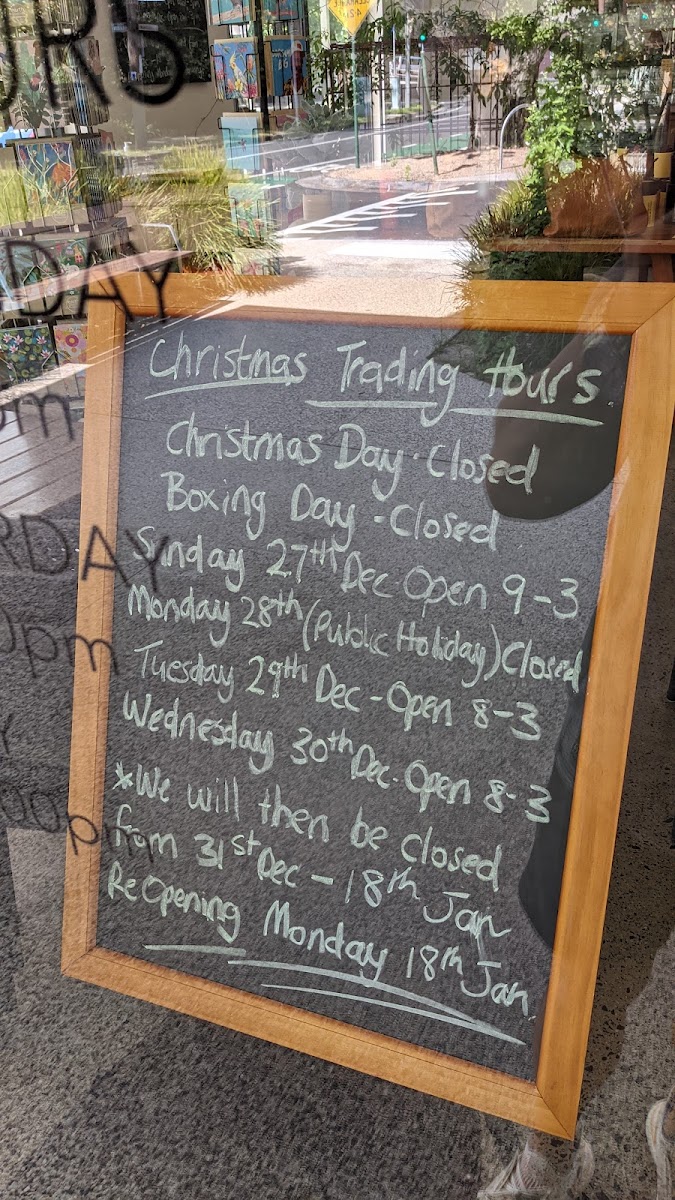 DAY
Christmas Trading Hours.
Christmas Day - Closed
Boxing Day - Closed
Sunday 27th Dec - Open 9-3
Monday 28th (Public Holiday) Closed
Tuesday 29th Dec - Open 8-3
Wednesday 30th Dec - Open 8-3
*We will then be closed
from 31st Dec - 18th Jan
ReOpening Monday 18th Jan.
RDAY
0pm
00pm